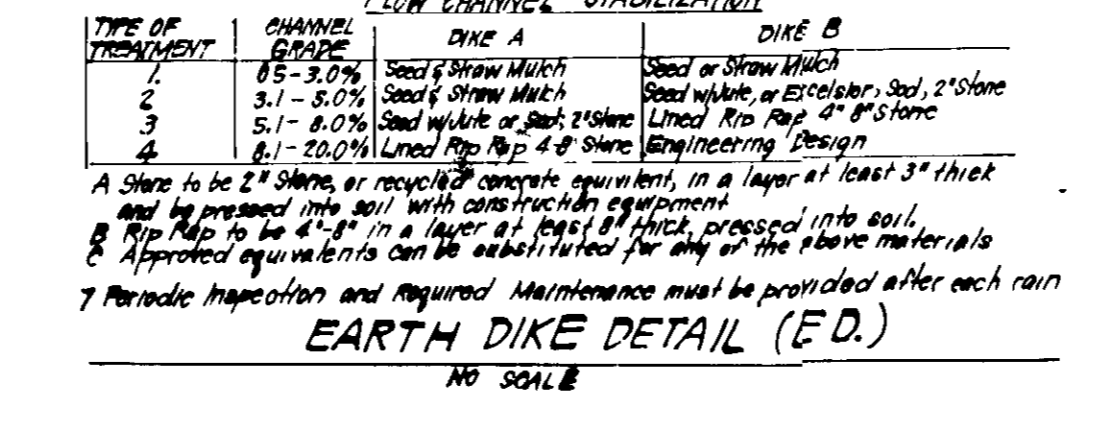 FLOW CHANNEL STABILIZATION
TYPE OF TREATMENT CHANNEL GRADE DIKE A DIKE B
1. 05-3.0% Seed & Straw Mulch Seed or Straw Mulch
2 3.1-5.0% Seed & Straw Mulch Seed w/Jute, or Excelsior, Sod, 2" Stone
3 5.1-8.0% Seed w/Jute or Sod; 2" Stone Lined Rip Rap 4" 8" Stone
4 8.1-20.0% Lined Rip Rap 4-8" Stone Engineering Design
A Stone to be 2" Stone, or recycled concrete equivilent, in a layer at least 3" thick
and be pressed into soil with construction equipment
B Rip Rap to be 4"-8" in a layer at least 8" thick, pressed into soil.
C Approved equivalents can be substituted for any of the above materials
7 Periodic Inspection and Required Maintenance must be provided after each rain
EARTH DIKE DETAIL (E.D.)
NO SCALE